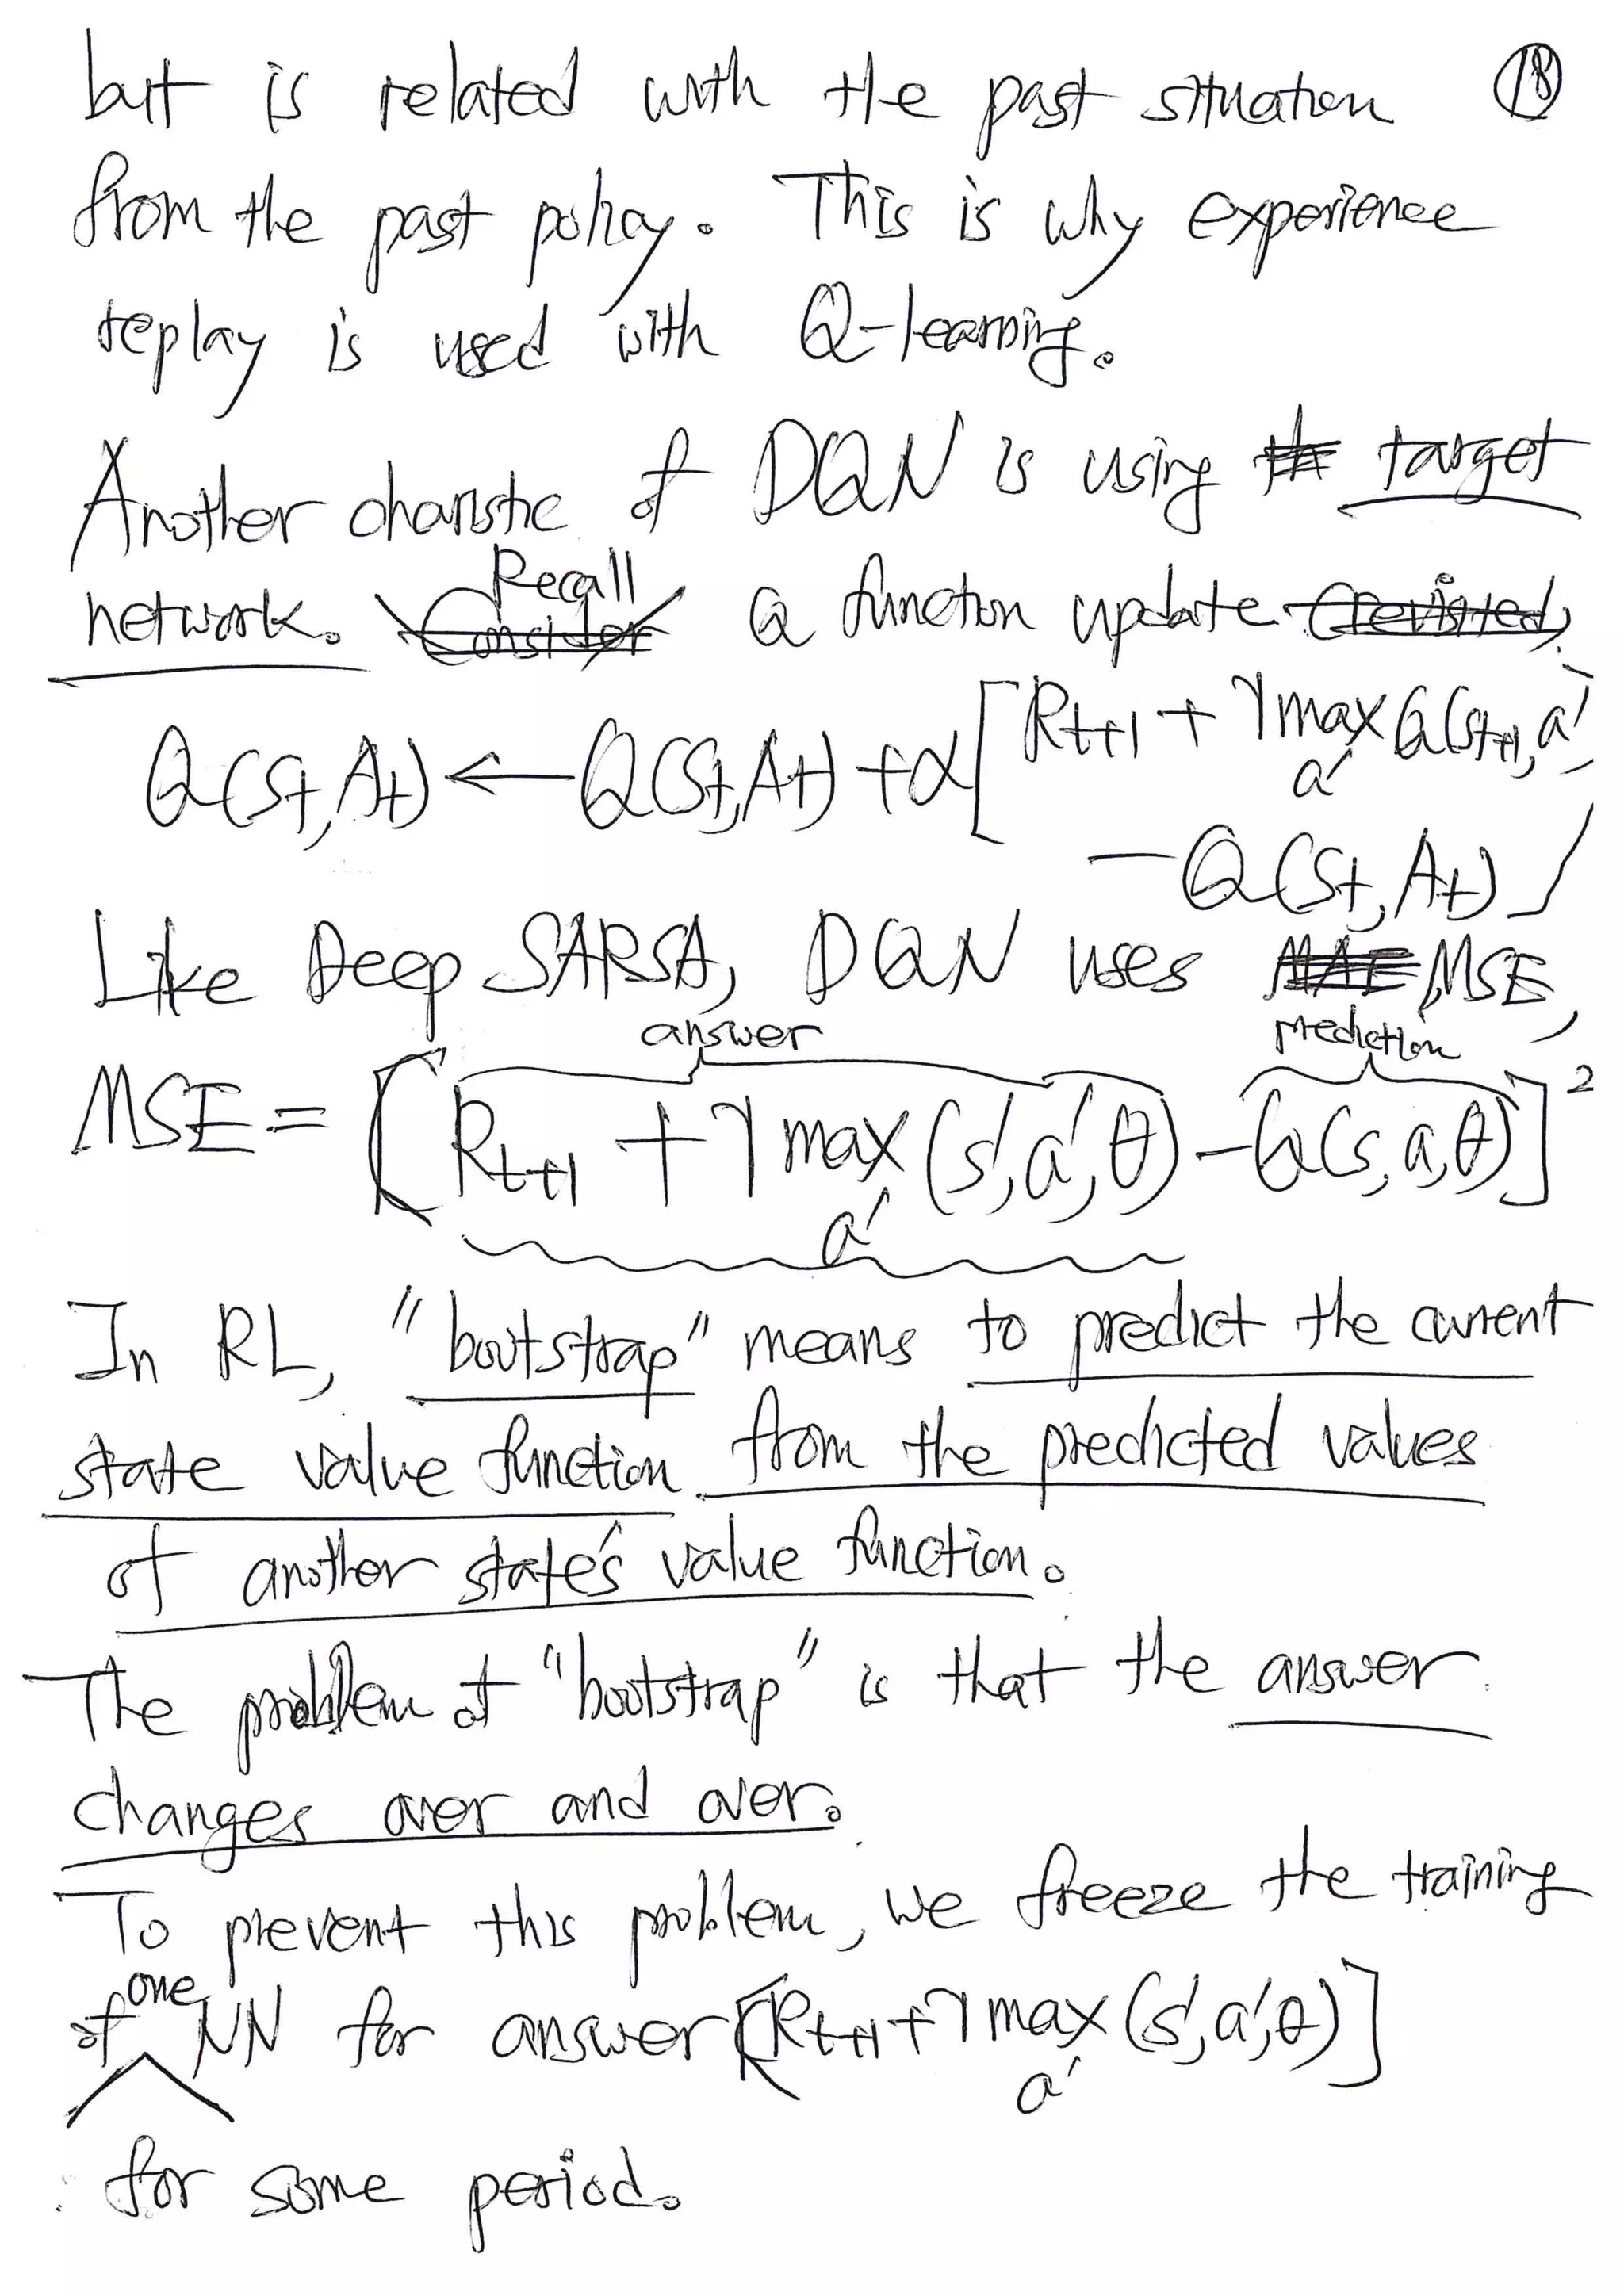 but is related with the past situation 18
from the past policy. This is why experience
replay is used with Q-learning.
Another charistic of DQN is using target
network. Recall Q function update
Q(St, At) ← Q(St, At) + α[Rt+1 + γ max a' Q(St+1, a')
− Q(St, At)]
Like Deep SARSA, DQN uses MSE,
answer prediction
MSE = [Rt+1 + γ max a' (s', a', θ) − Q(s, a, θ)]²
In RL, "bootstrap" means to predict the current
state value function from the predicted values
of another state's value function.
The problem of "bootstrap" is that the answer
changes over and over.
To prevent this problem, we freeze the training
of one NN for answer [Rt+1 + γ max a' (s', a', θ)]
for some period.